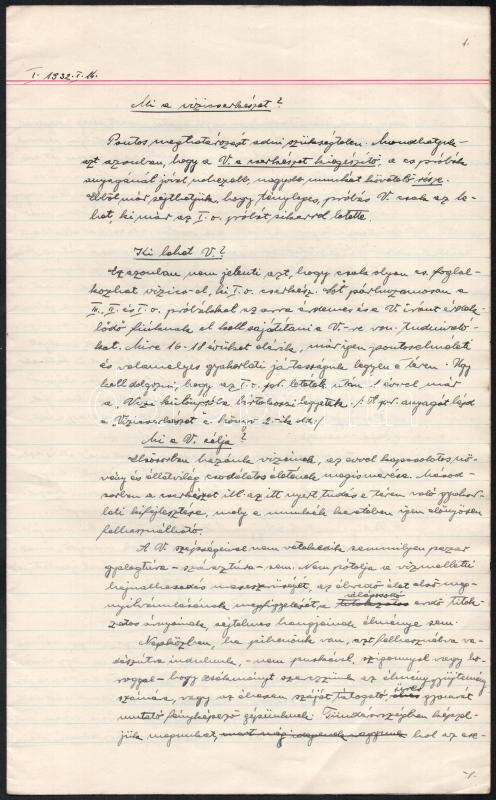 1.
I. 1932. I. 14.
Mi a vizicserkészet?
Pontos meghatározást adni szükségtelen. Mondhatjuk
azt azonban, hogy a V. a cserkészet kiegészítő, a cs. próbák
anyagánál jóval nehezebb, nagyobb munkát követelő része.
Ebből már sejthetjük, hogy tényleges, próbás V. csak az le-
het, ki már az I. o. próbát sikerrel letette.
Ki lehet V.?
Ez azonban nem jelenti azt, hogy csak olyan cs. foglal-
kozhat vizics-el, ki I. o. cserkész. Sőt párhuzamosan a
III., II. és I. o. próbákkal az arra érdemes és a V. iránt érdek-
lődő fiúknak el kell sajátítani a V-re von. tudnivaló-
kat. Mire 16-18 évüket elérik, már igen pontos elméleti
és valamelyes gyakorlati jártasságuk legyen e téren. Úgy
kell dolgozni, hogy az I. o. pr. letétele után 1 évvel már
a "Vizi különpróba" birtokosai legyetek. /: A pr. anyagát lásd
a "Vizicserkészet" c. könyv 2-ik old. :/
Mi a V. célja?
Elsősorban hazánk vizeinek, az avval kapcsolatos nö-
vény és állatvilág csodálatos életének megismerése. Másod-
sorban a cserkészet ill. az itt nyert tudás e téren való gyakor-
lati kifejlesztése, mely a munkák keretében igen előnyösen
felhasználható.
A V. szépségeivel nem vetekedik semmilyen pazar
gyalogtúra - száraztúra - sem. Nem pótolja a vizmelletti
hajnalhasadás meseszerűségét, az ébredő élet első meg-
nyilvánulásának megfigyelését, a titokzatos erdő titok-
zatos árnyainak, sejtelmes hangjainak élménye sem.
Napközben, ha pihenünk van, azt felhasználva va-
dászútra indulunk, - nem puskával, szigonnyal vagy ho-
roggal - hogy zsákmányt szerezzünk az élménygyűjtemény
számára, vagy az élvesen száját tátogató, üveg gyomrát
mutató fényképező gépünknek. Tündérországban képzel-
jük magunkat, hol az ese-
-/-